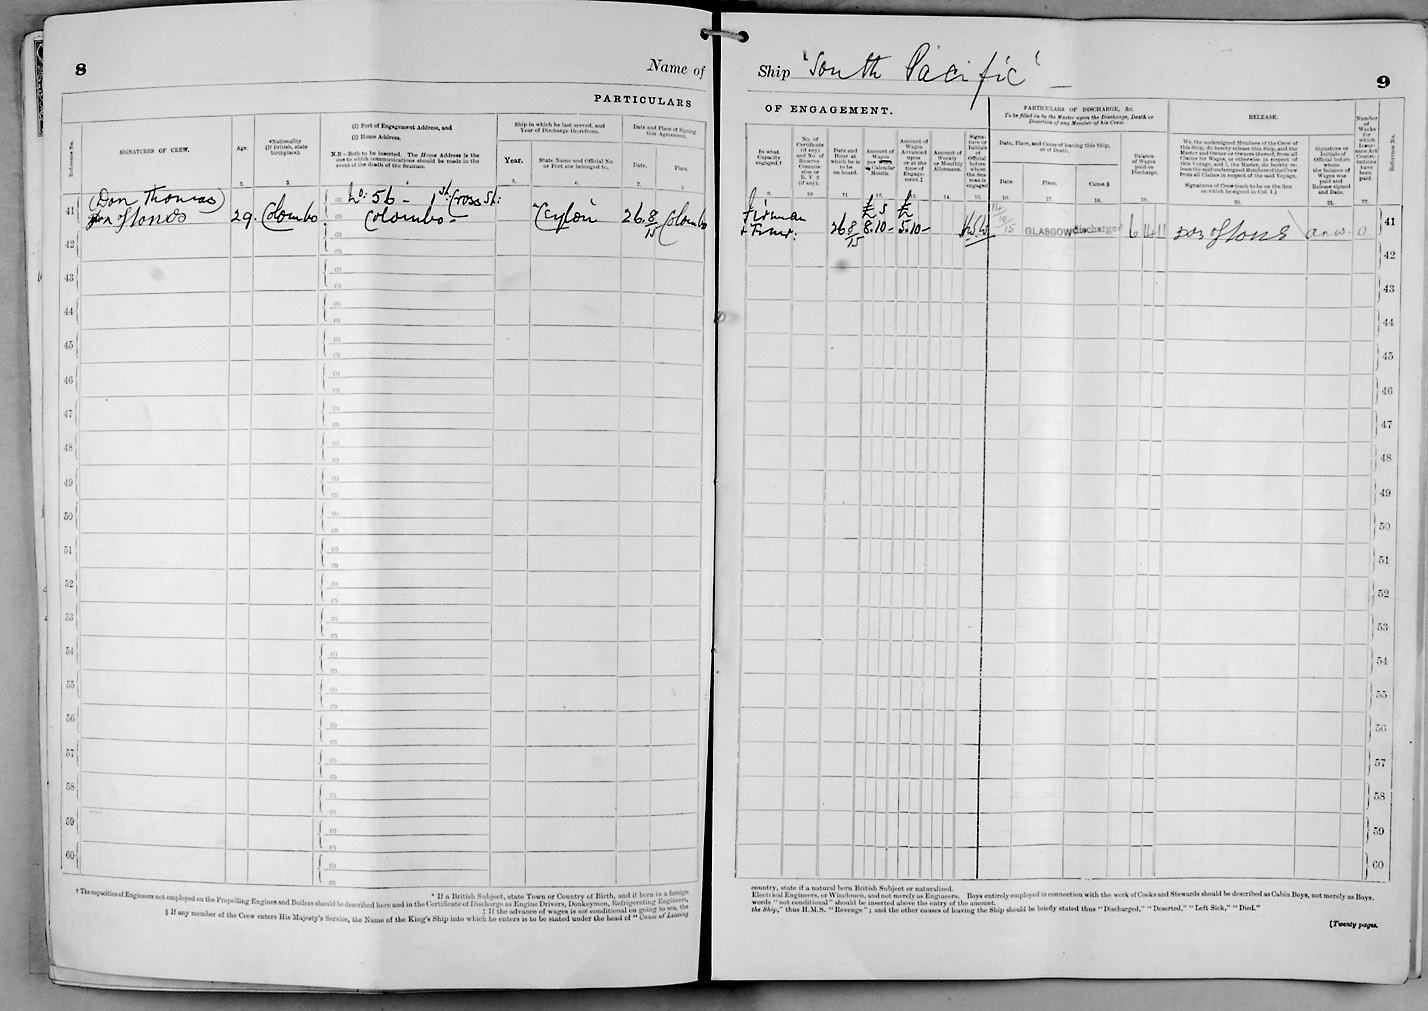 8
Name of
Ship "South Pacific"
9
PARTICULARS
OF ENGAGEMENT.
Reference No.
SIGNATURES OF CREW.
Age.
*Nationality
(If British, state
birthplace).
(1) Port of Engagement Address, and
(2) Home Address.
N.B.—Both to be inserted. The Home Address is the
one to which communications should be made in the
event of the death of the Seaman.
Ship in which he last served, and
Year of Discharge therefrom.
Year.
State Name and Official No.
or Port she belonged to.
Date and Place of Signing
this Agreement.
Date.
Place.
In what
Capacity
engaged.†
No. of
Certificate
(if any)
and No. of
Reserve
Commis-
sion or
R. V. 2
(if any).
Date and
Hour at
which he is
to be
on board.
Amount of
Wages
per
Calendar
Month.
Amount of
Wages
Advanced
upon
or at the
time of
Engage-
ment.‡
Amount of
Weekly
or Monthly
Allotment.
Signa-
ture or
Initials
of
Official
before
whom
the Sea-
man is
engaged
PARTICULARS OF DISCHARGE, &c.
To be filled in by the Master upon the Discharge, Death or
Desertion of any Member of his Crew.
Date, Place, and Cause of leaving this Ship,
or of Death.
Date.
Place.
Cause.§
Balance
of Wages
paid on
Discharge.
RELEASE.
We, the undersigned Members of the Crew of
this Ship, do hereby release this Ship, and the
Master and Owner or Owners thereof, from all
Claims for Wages, or otherwise in respect of
this Voyage, and I, the Master, do hereby re-
lease the said undersigned Members of the Crew
from all Claims in respect of the said Voyage.
Signatures of Crew (each to be on the line
on which he signed in Col. 1.)
Signature or
Initials of
Official before
whom
the balance of
Wages was
paid and
Release signed
and Date.
Number
of
Weeks
for
which
Insur-
ance Act
Contri-
butions
have
been
paid.
Reference No.
41
(Don Thomas)
29 Colombo
(1) No: 56 - 1st Cross St:
(2) Colombo -
Ceylon
26 8/15 Colombo
Fireman
+ Trimr.
26 8/15
£ s
8.10-
£
5.10-
H.W.
14/10/15
GLASGOW
Discharged
6 14 11
0
41
42
42
43
43
44
44
45
45
46
46
47
47
48
48
49
49
50
50
51
51
52
52
53
53
54
54
55
55
56
56
57
57
58
58
59
59
60
60
* If a British Subject, state Town or Country of Birth, and if born in a foreign
country, state if a natural born British Subject or naturalized.
† The capacities of Engineers not employed on the Propelling Engines and Boilers should be described here and in the Certificate of Discharge as Engine Drivers, Donkeymen, Refrigerating Engineers,
Electrical Engineers, or Winchmen, and not merely as Engineers. Boys entirely employed in connection with the work of Cooks and Stewards should be described as Cabin Boys, not merely as Boys.
‡ If the advance of wages is not conditional on going to sea, the
words "not conditional" should be inserted above the entry of the amount.
§ If any member of the Crew enters His Majesty's Service, the Name of the King's Ship into which he enters is to be stated under the head of "Cause of Leaving
the Ship," thus H.M.S. "Revenge"; and the other causes of leaving the Ship should be briefly stated thus "Discharged," "Deserted," "Left Sick," "Died."
[Twenty pages.